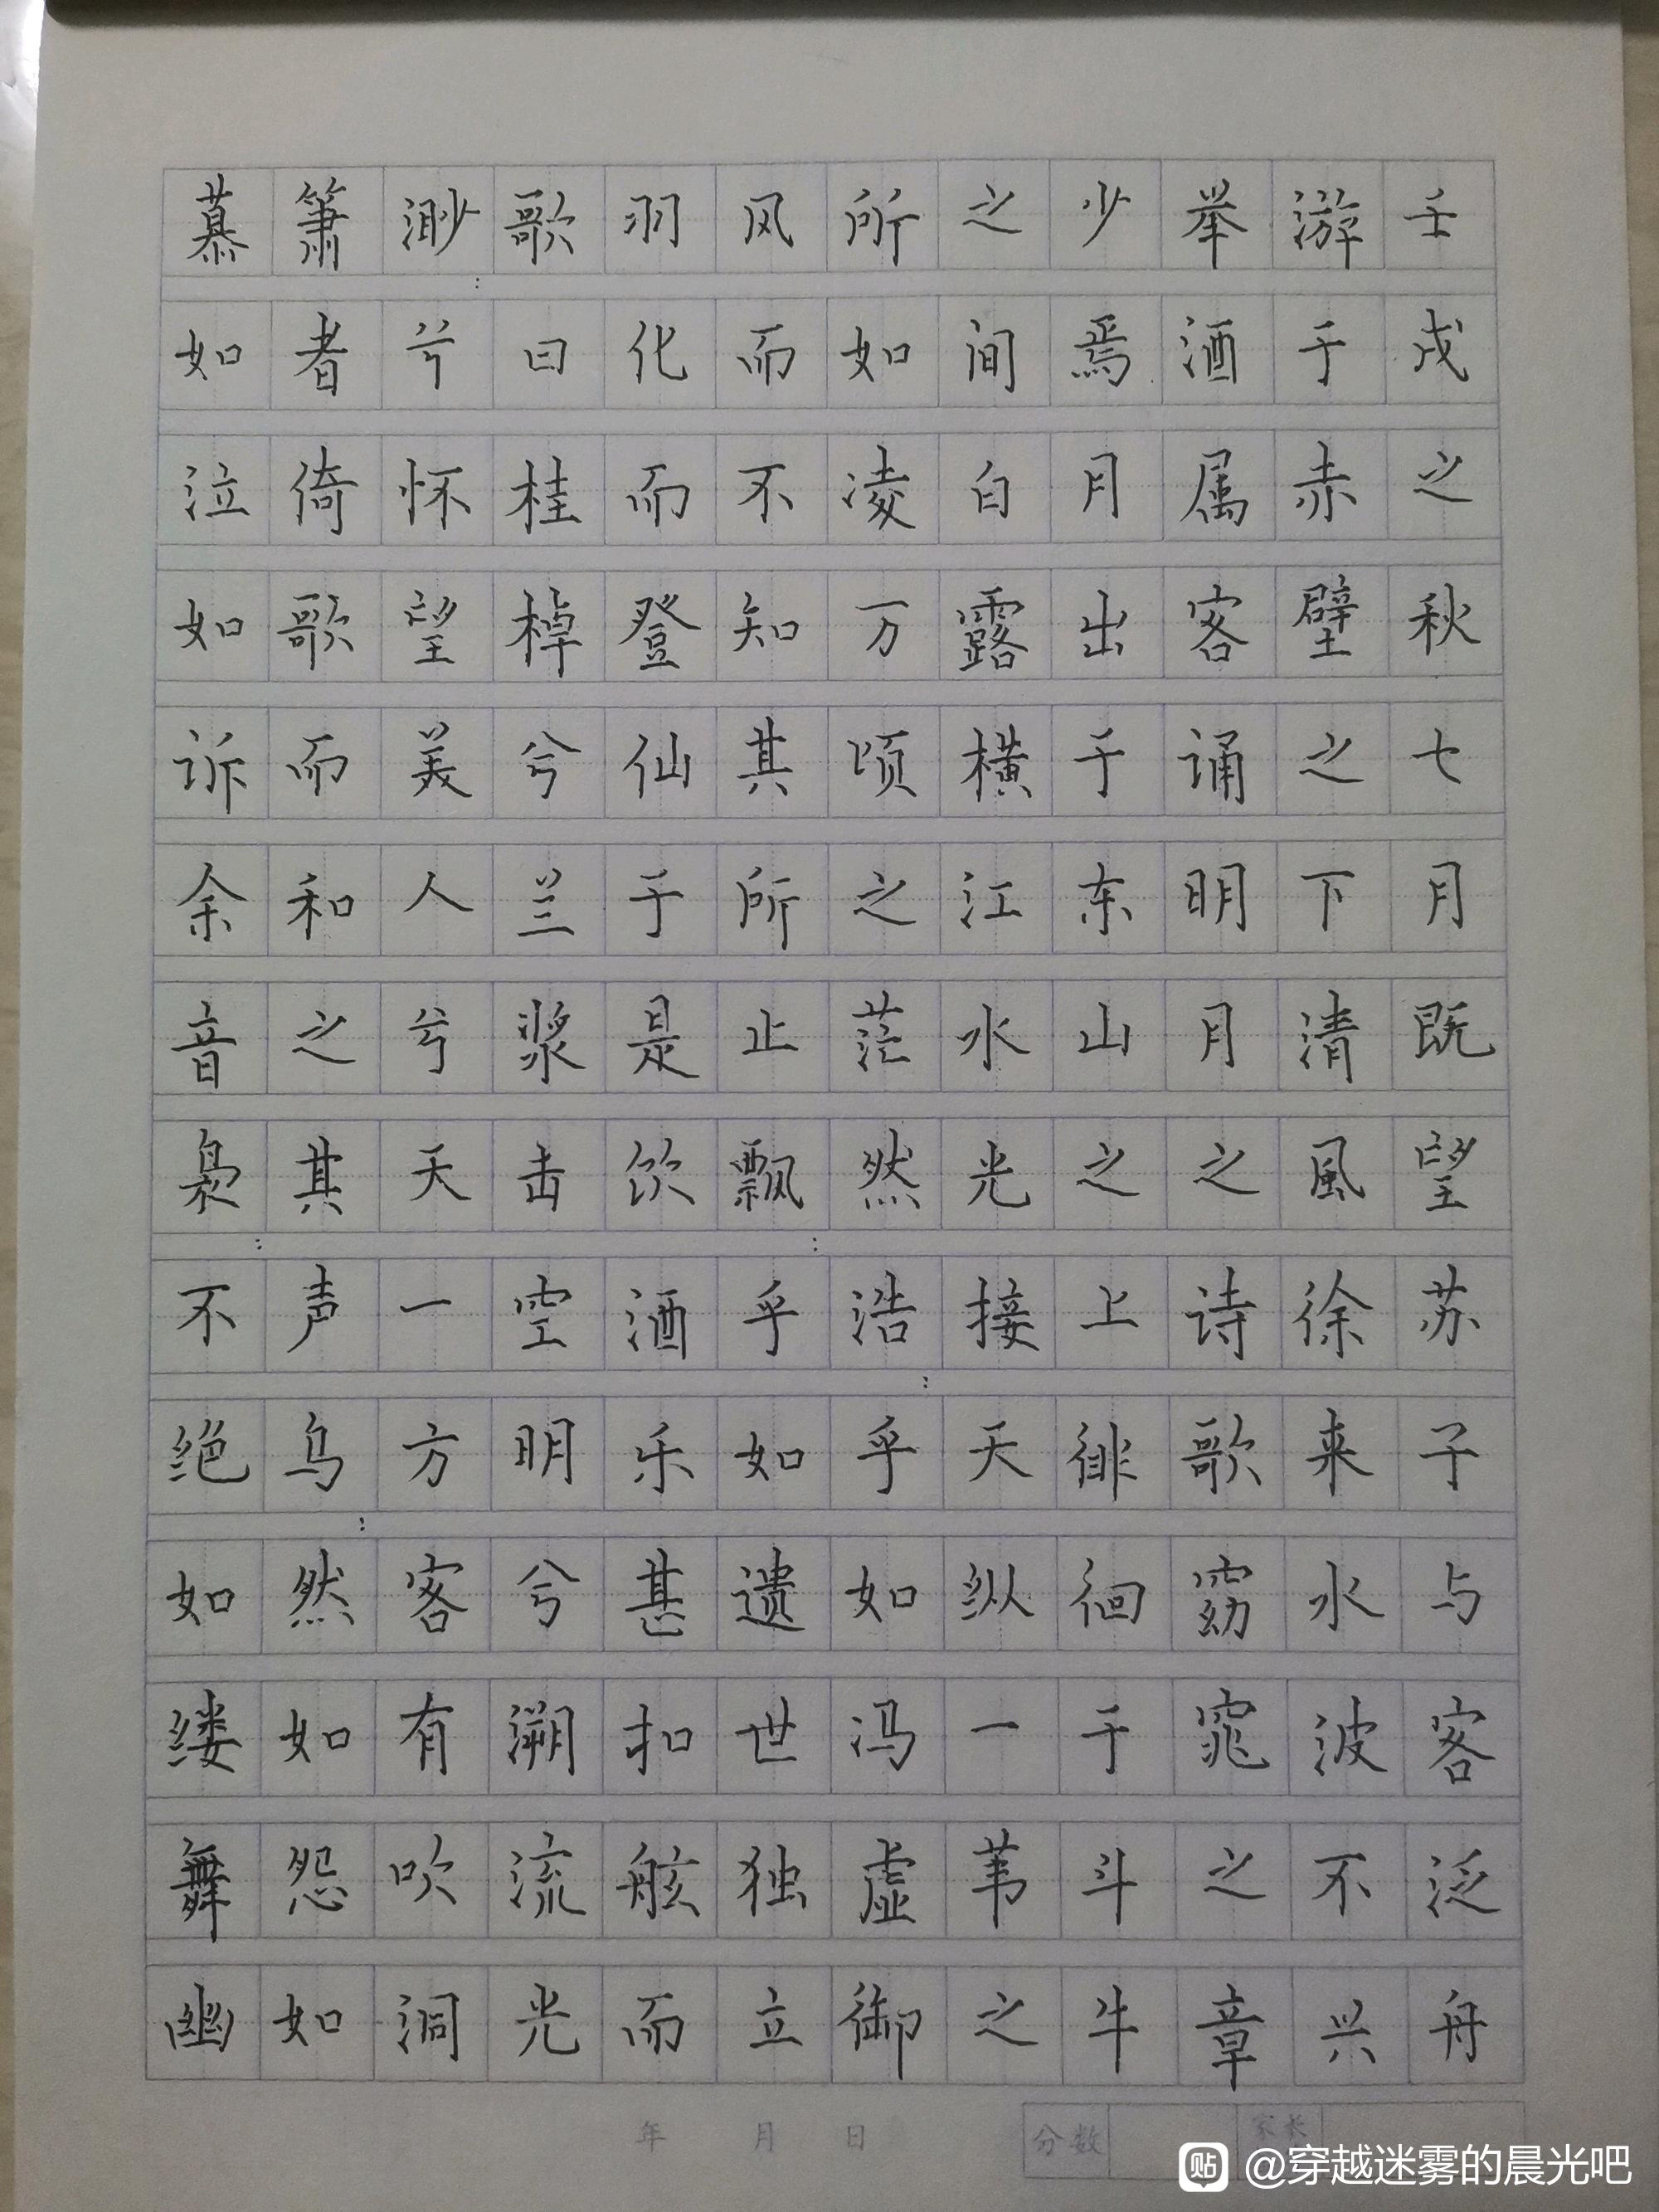 壬戌之秋七月既望苏子与客泛舟
游于赤壁之下清風徐来水波不兴
举酒属客诵明月之诗歌窈窕之章
少焉月出于东山之上徘徊于斗牛
之间白露横江水光接天纵一苇之
所如凌万顷之茫然浩：乎如冯虚御
风而不知其所止飘：乎如遗世独立
羽化而登仙于是饮酒乐甚扣舷而
歌曰桂棹兮兰浆击空明兮溯流光
渺：兮怀望美人兮天一方客有吹洞
箫者倚歌而和之其声乌：然如怨如
慕如泣如诉余音袅：不绝如缕舞幽
年 月 日 分数 家长
贴 @穿越迷雾的晨光吧